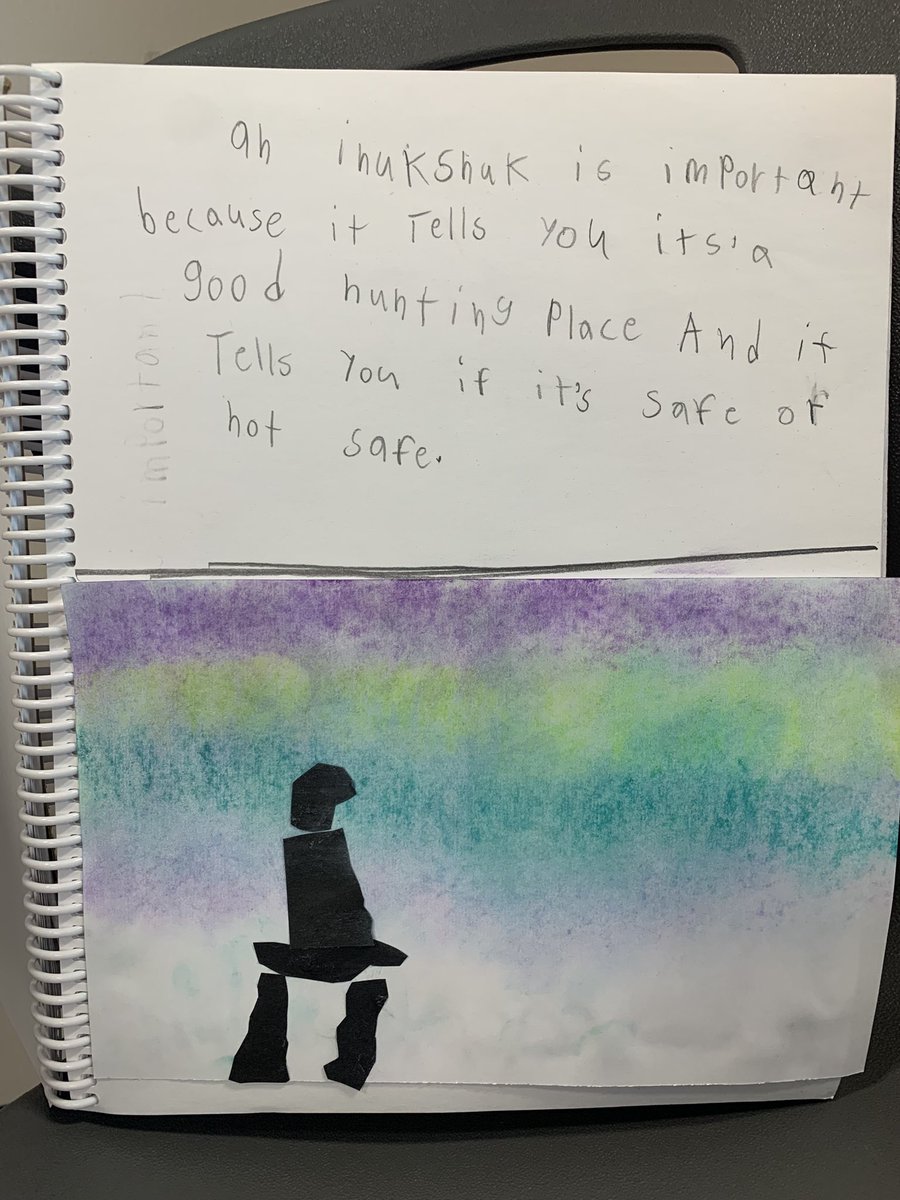 an inukshuk is imPortant
because it Tells you its'a
good hunting Place And it
Tells you if it's safe or
not safe.
important